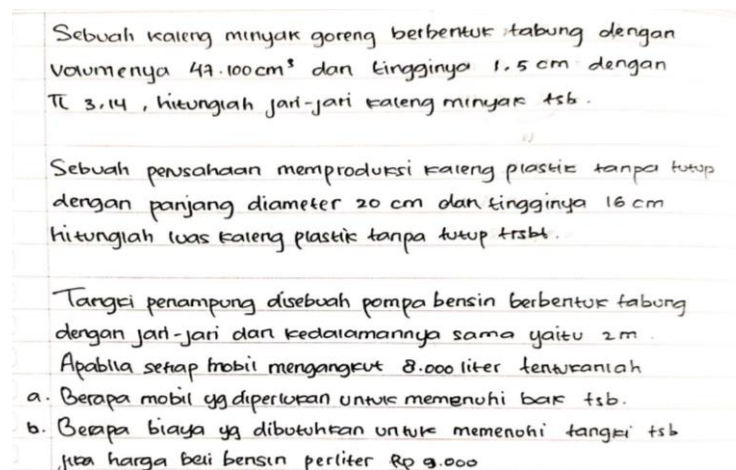 Sebuah kaleng minyak goreng berbentuk tabung dengan
volumenya 47.100 cm³ dan tingginya 1.5 cm dengan
π 3.14 , hitunglah jari-jari kaleng minyak tsb.
Sebuah perusahaan memproduksi kaleng plastik tanpa tutup
dengan panjang diameter 20 cm dan tingginya 16 cm
hitunglah luas kaleng plastik tanpa tutup trsbt.
Tangki penampung disebuah pompa bensin berbentuk tabung
dengan jari-jari dan kedalamannya sama yaitu 2 m.
Apabila setiap mobil mengangkut 8.000 liter tentukanlah
a. Berapa mobil yg diperlukan untuk memenuhi bak tsb.
b. Berapa biaya yg dibutuhkan untuk memenohi tangki tsb
jika harga beli bensin perliter Rp 9.000